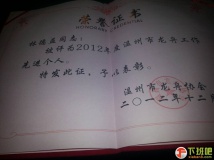 荣誉证书
同志:
被评为2012年度温州市龙舟工作
先进个人。
特发此证,予以表彰。
温州市龙舟协会
二〇一二年十二月
下班吧